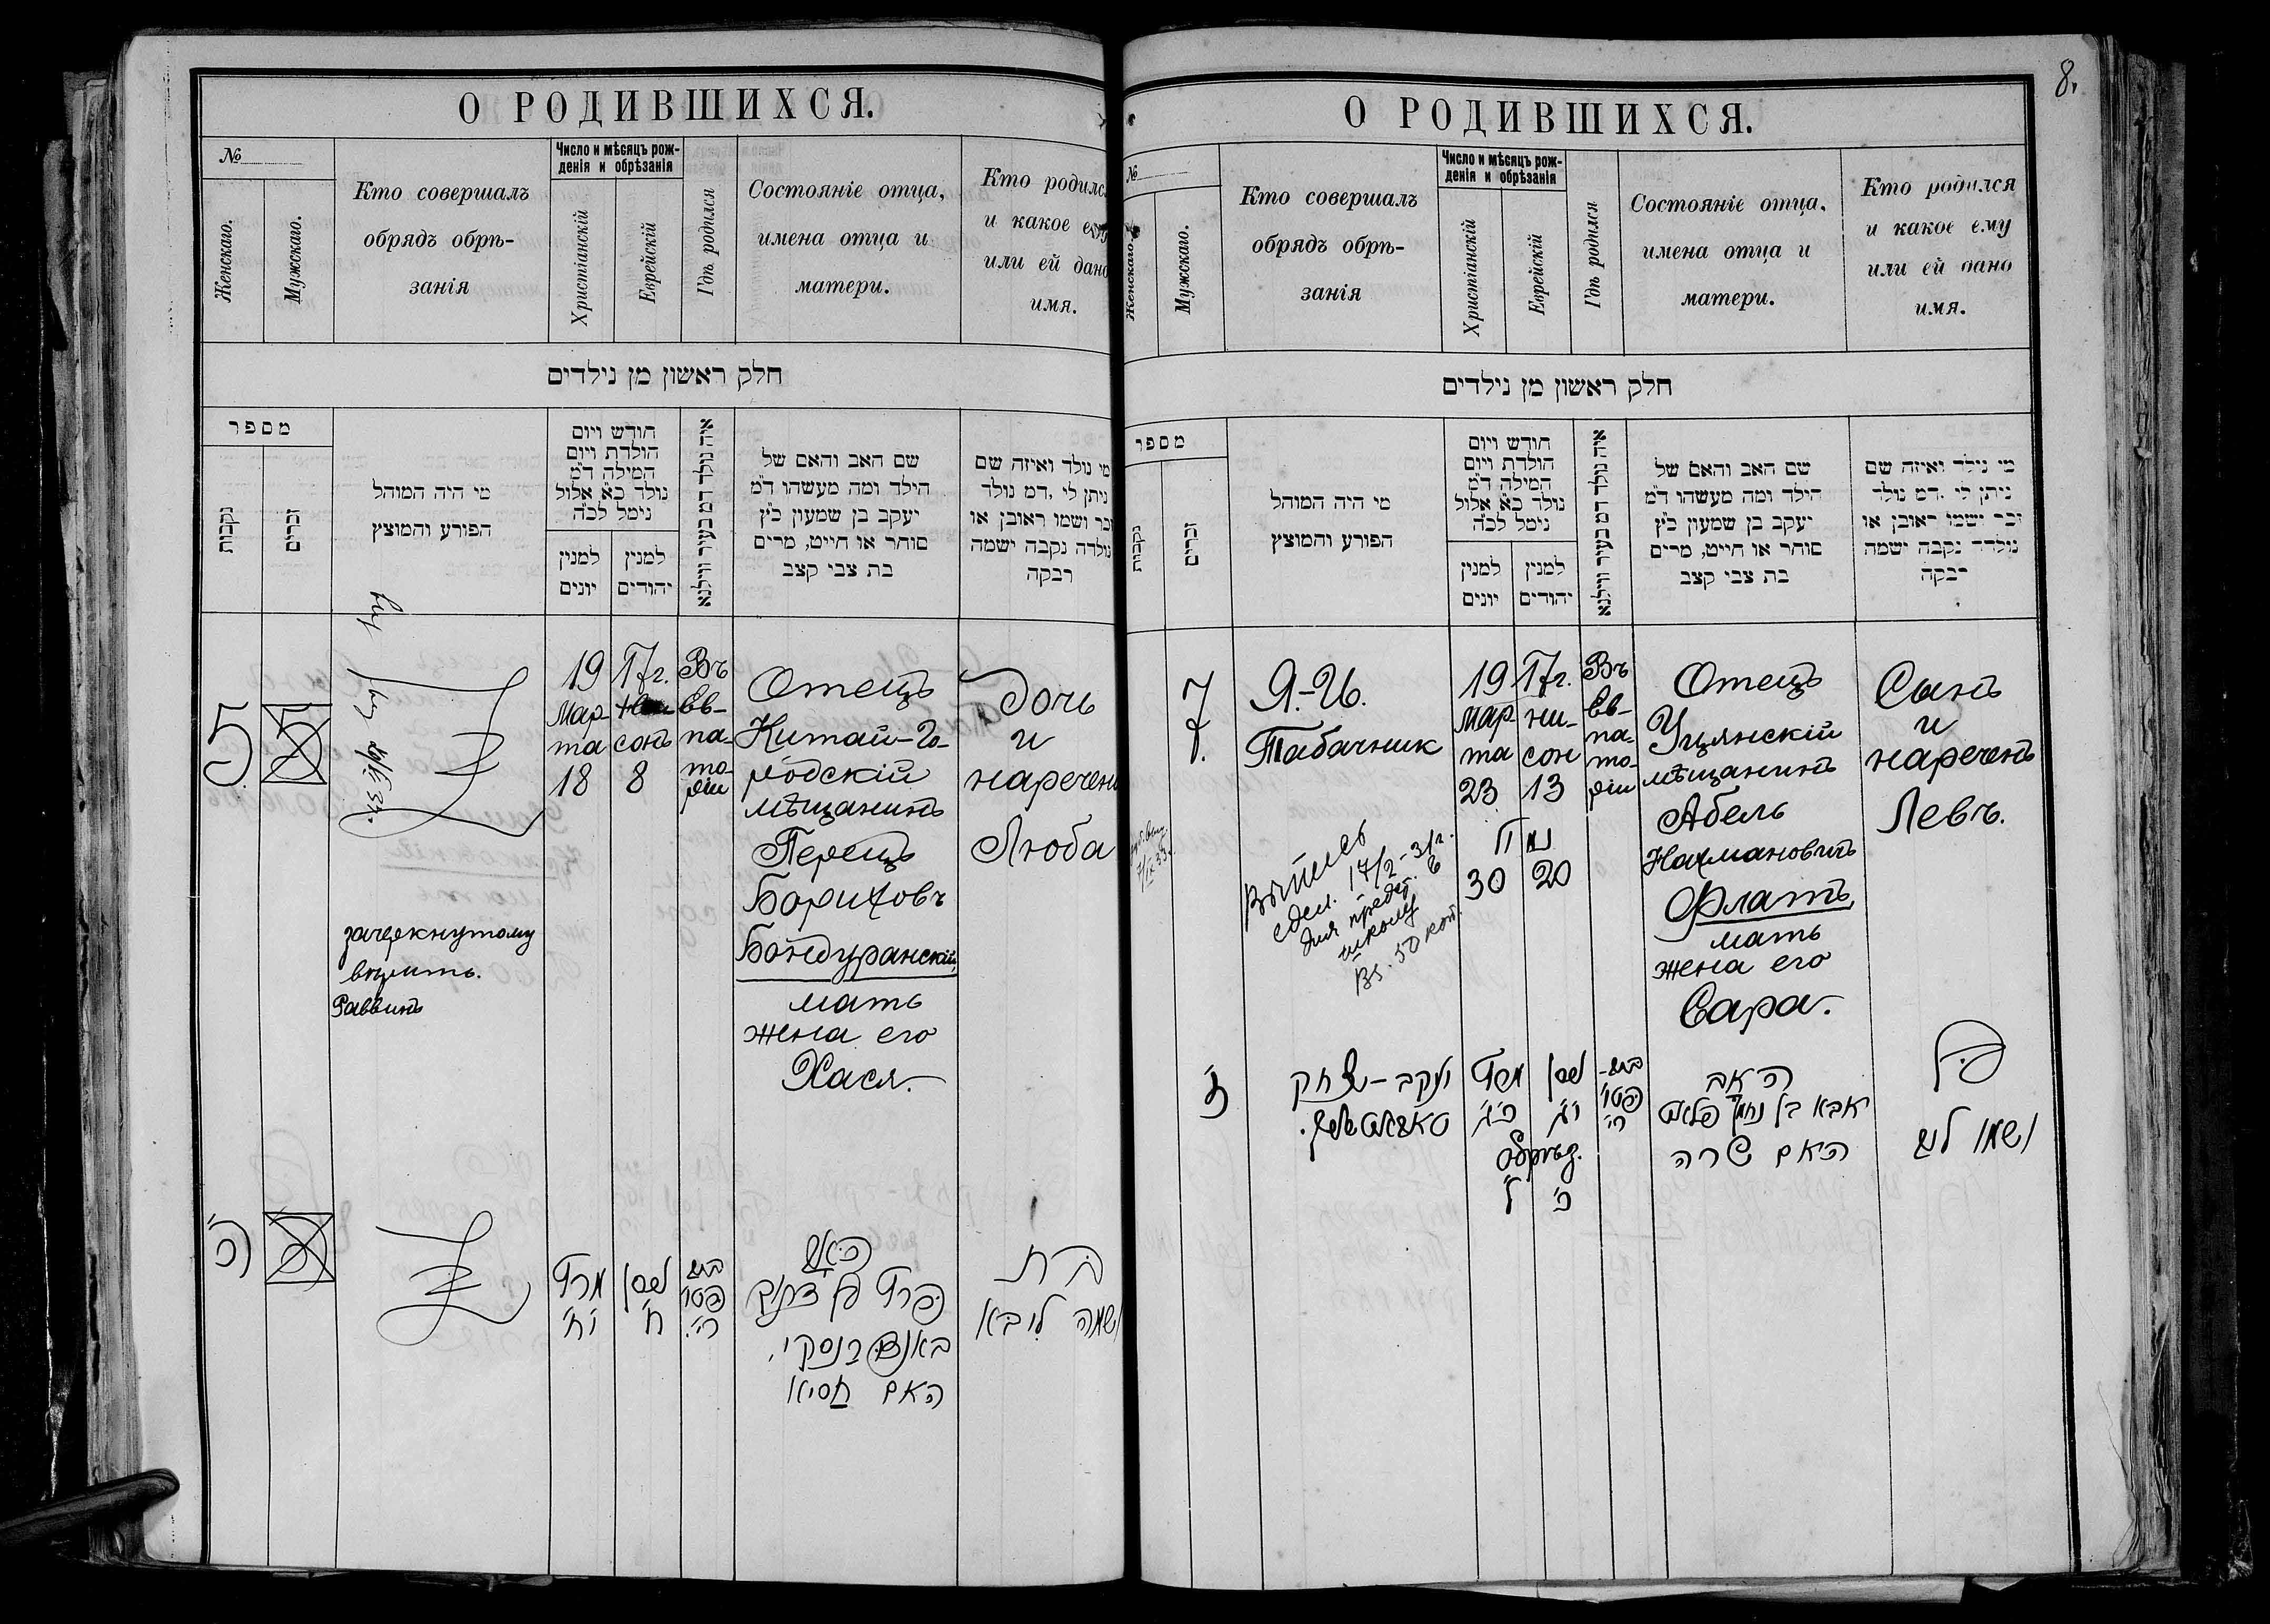 О РОДИВШИХСЯ.
№
Женскаго.
Мужскаго.
Кто совершалъ
обрядъ обрѣ-
занія
Число и мѣсяцъ рож-
денія и обрѣзанія
Христіанскій
Еврейскій
Гдѣ родился
Состояніе отца,
имена отца и
матери.
Кто родилс
и какое ему
или ей дано
имя.
חלק ראשון מן נילדים
מספר
נקבות
זכרים
מי היה המוהל
הפורע והמוצץ
חודש ויום
הולדת ויום
המילה ד״מ
נולד כ״א אלול
נימל לכ״ה
למנין
יונים
למנין
יהודים
איה נולד דמ בעיר ווילנא
שם האב והאם של
הילד ומה מעשהו ד״מ
יעקב בן שמעון כ״ץ
סוחר או חייט, מרים
בת צבי קצב
מי נולד ואיזה שם
ניתן לי ,דמ נולד
זכר ושמו ראובן או
נולדה נקבה ישמה
רבקה
5
5
19
Мар-
та
18
17г.
сонъ
8
Въ
Ев-
па-
то-
ріи
Отецъ
Китай-Го-
родскій
мѣщанинъ
Перецъ
Бориховъ
Бондуранскій,
мать
жена его
Хася.
Дочь
и
наречена
Люба
зачеркнутому
вѣрить.
Раввинъ
ה׳
מרץ
י״ח
ניסן
ח׳
האב
פרץ בן
האם חסיא
בת
ושמה ליבא
8.
О РОДИВШИХСЯ.
№
Женскаго.
Мужскаго.
Кто совершалъ
обрядъ обрѣ-
занія
Число и мѣсяцъ рож-
денія и обрѣзанія
Христіанскій
Еврейскій
Гдѣ родился
Состояніе отца,
имена отца и
матери.
Кто родился
и какое ему
или ей дано
имя.
חלק ראשון מן נילדים
מספר
נקבות
זכרים
מי היה המוהל
הפורע והמוצץ
חודש ויום
הולדת ויום
המילה ד״מ
נולד כ״א אלול
נימל לכ״ה
למנין
יונים
למנין
יהודים
איה נולד דמ בעיר ווילנא
שם האב והאם של
הילד ומה מעשהו ד״מ
יעקב בן שמעון כ״ץ
סוחר או חייט, מרים
בת צבי קצב
מי נולד ואיזה שם
ניתן לי ,דמ נולד
זכר ושמו ראובן או
נולדה נקבה ישמה
רבקה
7.
Я.-И.
Табачник
19
Мар-
та
23
30
17г.
ни-
сон
13
20
Въ
Ев-
па-
то-
ріи
Отецъ
Уцянскій
мѣщанинъ
Абель
Нахмановичъ
Флатъ,
мать
жена его
Сара.
Сынъ
и
нареченъ
Левъ.
Выпись
сдел. 17/2-31г.
для предст. в
школу
Вз. 50 коп.
ז׳
יעקב-יצחק
מרץ
כ״ג
ניסן
י״ג
ל׳
כ׳
האב
אבא בן נחמן פלאט
האם שרה
בן
ושמו ליב